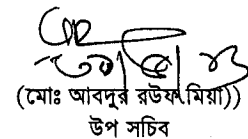 (মোঃ আবদুর রউফ মিয়া))
উপ সচিব